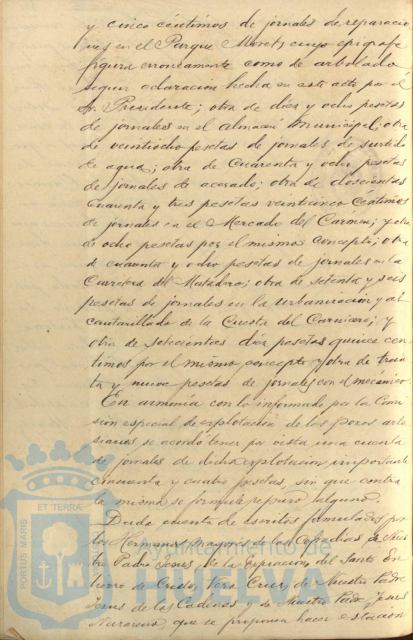 y cinco céntimos de jornales de reparacio
nes en el Parque Moret, cuyo epígrafe
figura erroneamente como de arbolado
segun aclaracion hecha en este acto por el
Sr. Presidente; otra de diez y ocho pesetas
de jornales en el almacen municipal; otra
de veintiocho pesetas de jornales de surtido
de agua; otra de cuarenta y ocho pesetas
de jornales de acerado; otra de doscientas
cuarenta y tres pesetas veinticinco céntimos
de jornales en el Mercado del Carmen; y otra
de ocho pesetas por el mismo concepto; otra
de cuarenta y ocho pesetas de jornales en la
Carretera del Matadero; otra de setenta y seis
pesetas de jornales en la urbanizacion y al
cantarillado de la Cuesta del Carnicero; y
otra de setecientas diez pesetas quince cen
timos por el mismo concepto y otra de trein
ta y nueve pesetas de jornales con el mecanico
En armonía con lo informado por la Comi
sion especial de explotacion de los pozos arte
sianos se acordó tener por vista una cuenta
de jornales de dicha explotacion importante
cincuenta y cuatro pesetas, sin que contra
la misma se formule reparo alguno.
Dada cuenta de escritos formulados por
los Hermanos Mayores de las Cofradias de Nues
tro Padre Jesus de la Expiracion, del Santo En
tierro de Cristo, Vera Cruz, de Nuestro Padre
Jesus de las Cadenas y de Nuestro Padre Jesus
Nazareno, que se proponen hacer estacion
PORTUS MARIS
ET TERRÆ
Ayuntamiento de
HUELVA